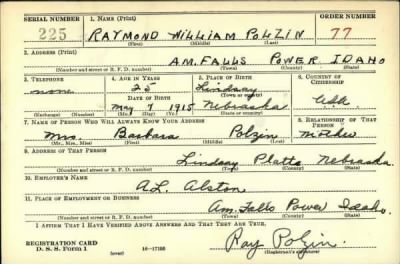 SERIAL NUMBER 1. NAME (Print) ORDER NUMBER
225 RAYMOND WILLIAM POLZIN 77
(First) (Middle) (Last)
2. ADDRESS (Print)
AM. FALLS POWER IDAHO
(Number and street or R. F. D. number) (Town) (County) (State)
3. TELEPHONE 4. AGE IN YEARS 5. PLACE OF BIRTH 6. COUNTRY OF CITIZENSHIP
none 25 Lindsay
DATE OF BIRTH (Town or county)
May 7 1915 Nebraska USA
(Exchange) (Number) (Mo.) (Day) (Yr.) (State or country)
7. NAME OF PERSON WHO WILL ALWAYS KNOW YOUR ADDRESS 8. RELATIONSHIP OF THAT PERSON
Mrs. Barbara Polzin Mother
(Mr., Mrs., Miss) (First) (Middle) (Last)
9. ADDRESS OF THAT PERSON
Lindsay Platte Nebraska
(Number and street or R. F. D. number) (Town) (County) (State)
10. EMPLOYER'S NAME
A.L. Alston
11. PLACE OF EMPLOYMENT OR BUSINESS
Am. Falls Power Idaho
(Number and street or R. F. D. number) (Town) (County) (State)
I AFFIRM THAT I HAVE VERIFIED ABOVE ANSWERS AND THAT THEY ARE TRUE.
REGISTRATION CARD Ray Polzin
D. S. S. Form 1 (over) 16—17105 (Registrant's signature)